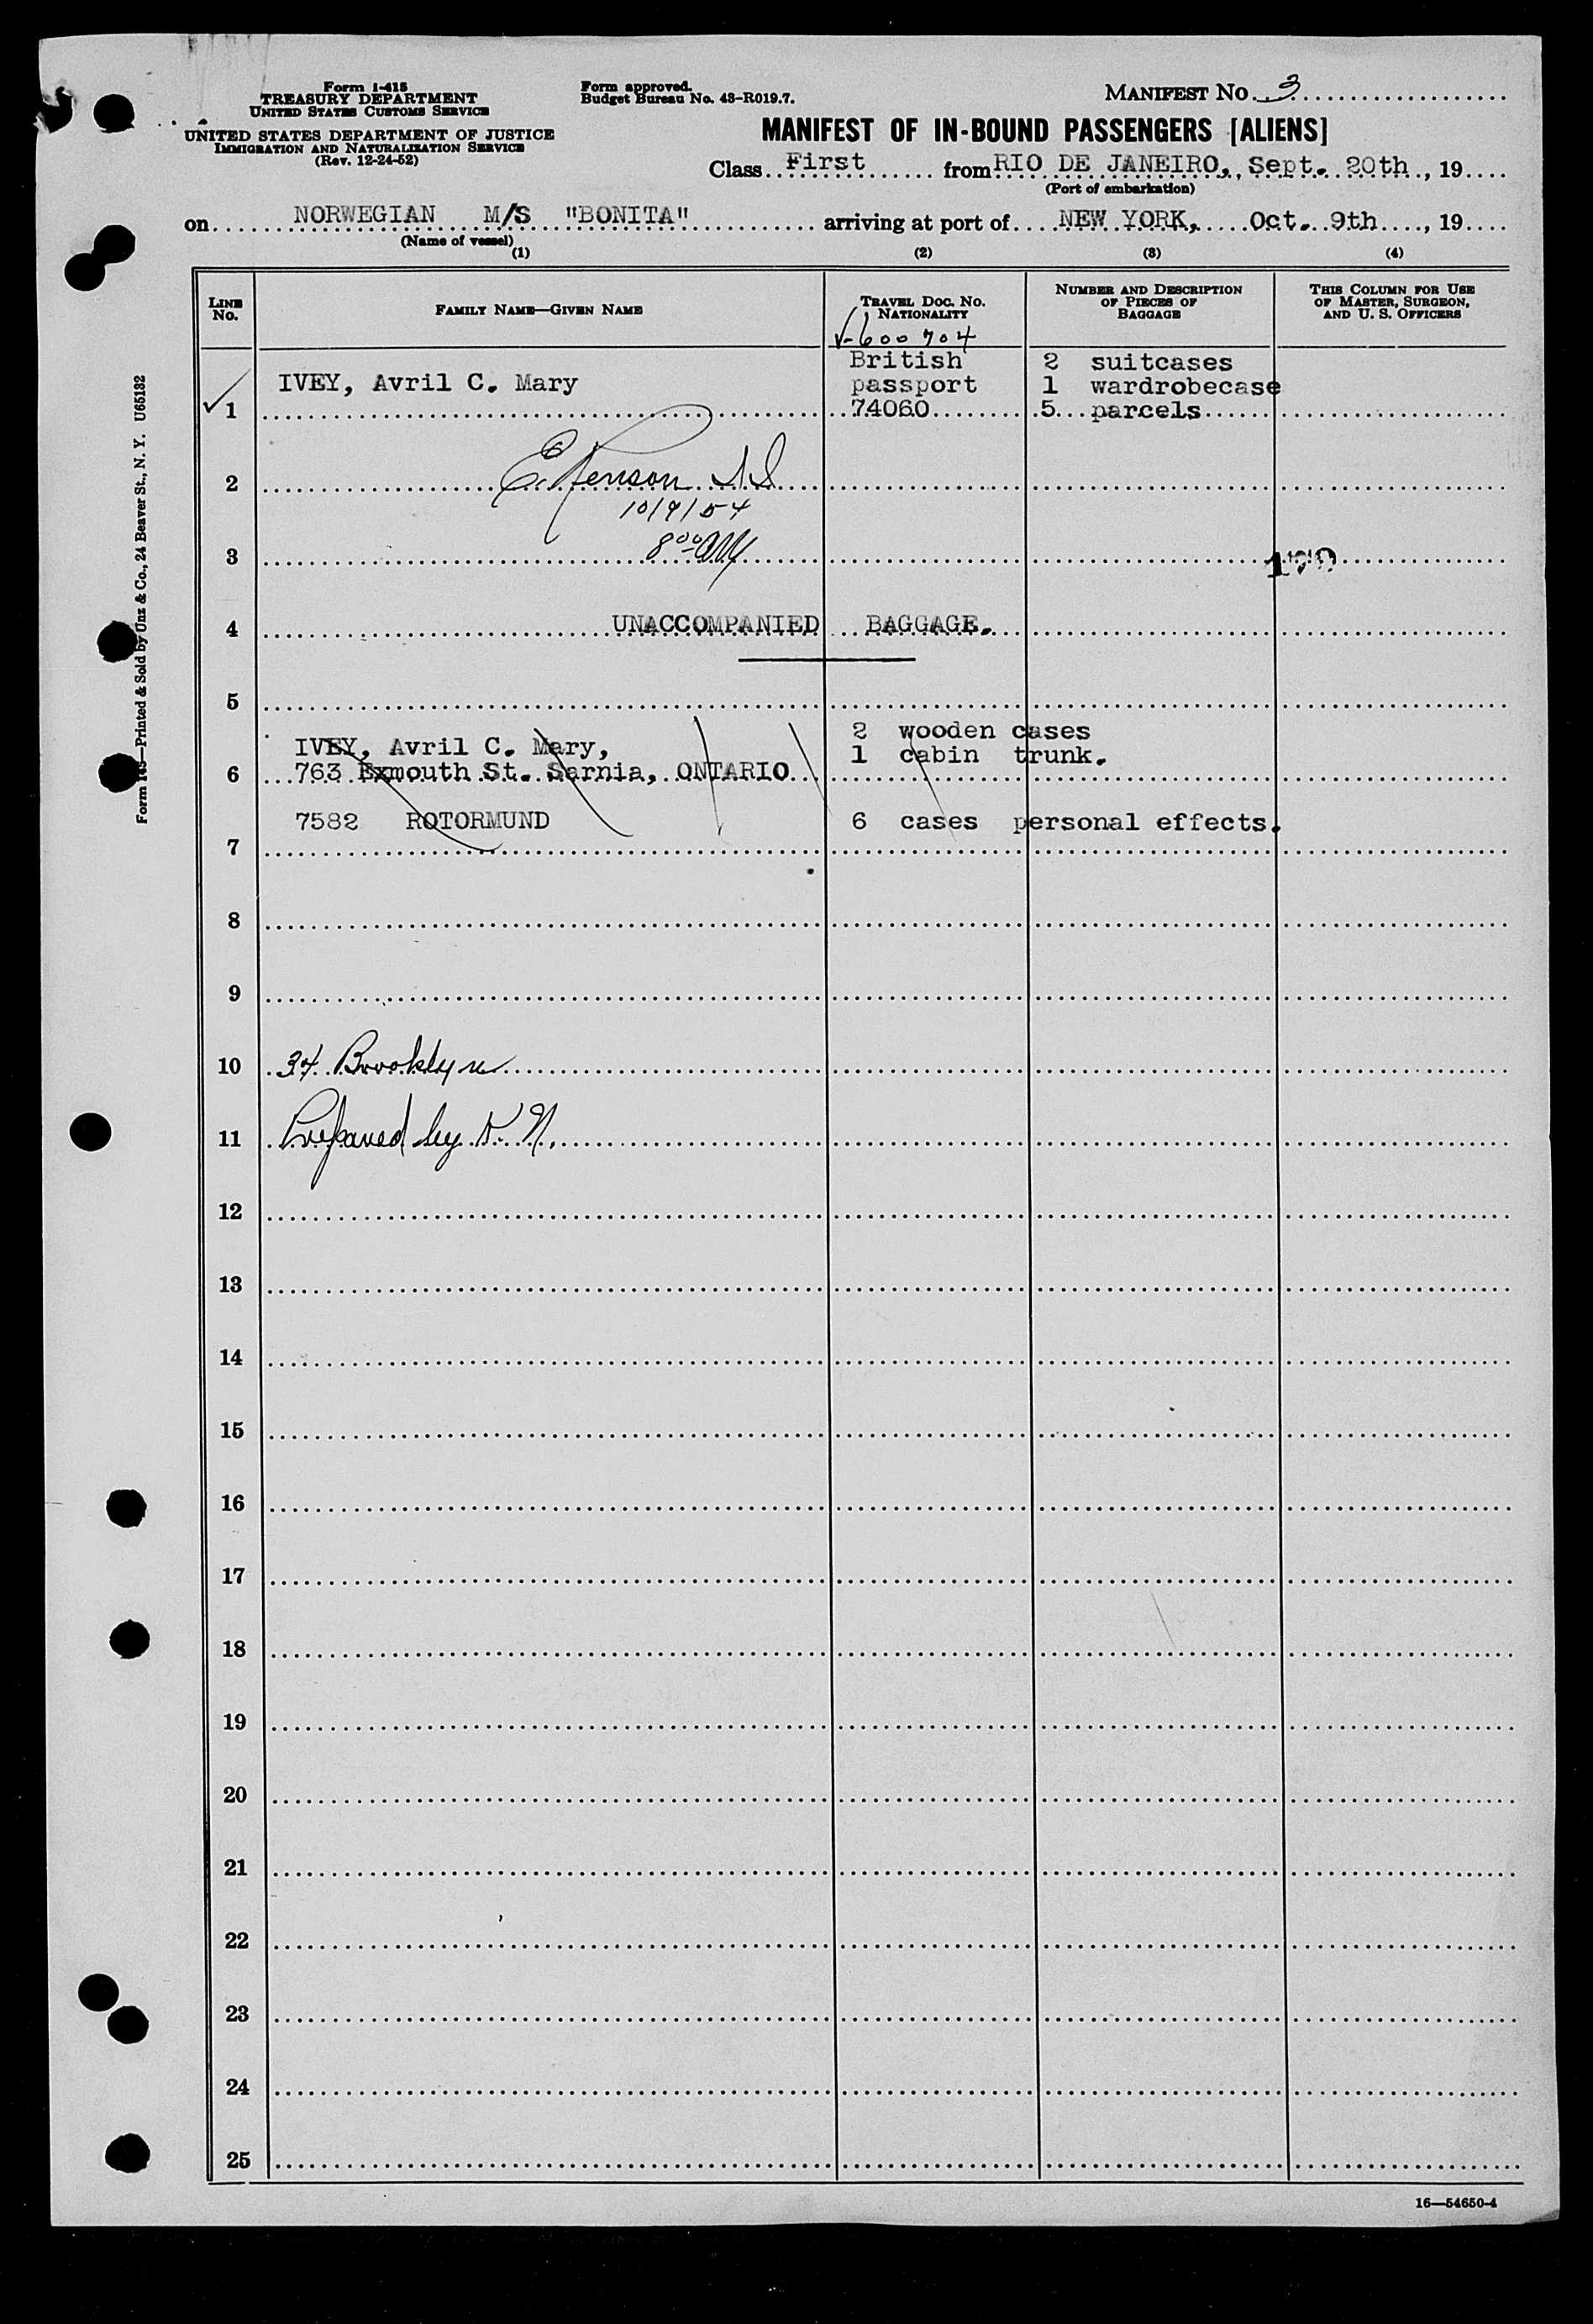 Form I-415
TREASURY DEPARTMENT
UNITED STATES CUSTOMS SERVICE
UNITED STATES DEPARTMENT OF JUSTICE
IMMIGRATION AND NATURALIZATION SERVICE
(Rev. 12-24-52)
Form approved.
Budget Bureau No. 43-R019.7.
MANIFEST NO. 3
MANIFEST OF IN-BOUND PASSENGERS [ALIENS]
Class First from RIO DE JANEIRO, Sept. 20th, 19
(Port of embarkation)
on NORWEGIAN M/S "BONITA" arriving at port of NEW YORK, Oct. 9th, 19
(Name of vessel)
(1) (2) (3) (4)
LINE No. FAMILY NAME—GIVEN NAME TRAVEL DOC. NO. NATIONALITY NUMBER AND DESCRIPTION OF PIECES OF BAGGAGE THIS COLUMN FOR USE OF MASTER, SURGEON, AND U. S. OFFICERS
V-600704
British 2 suitcases
IVEY, Avril C. Mary passport 1 wardrobecase
1 74060 5 parcels
2 E.
10/9/54
3 8 00 AM
4 UNACCOMPANIED BAGGAGE.
5
2 wooden cases
IVEY, Avril C. Mary, 1 cabin trunk.
6 763 Exmouth St. Sarnia, ONTARIO
7582 ROTORMUND 6 cases personal effects.
7
8
9
10 34 Brooklyn
11 Prepared by K. N.
12
13
14
15
16
17
18
19
20
21
22
23
24
25
16—54650-4
Printed & Sold by Unz & Co., 24 Beaver St., N. Y. U65132